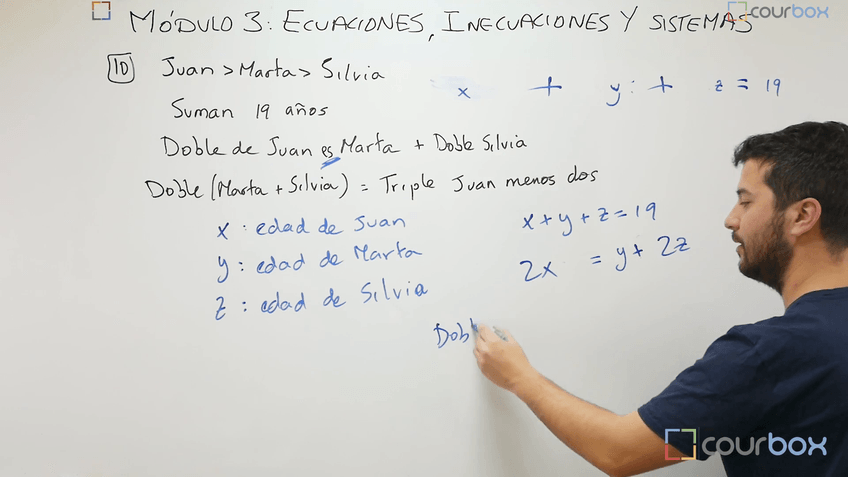 MÓDULO 3: ECUACIONES, INECUACIONES Y SISTEMAS
courbox
10 Juan > Marta > Silvia
x + y: + z = 19
Suman 19 años
Doble de Juan es Marta + Doble Silvia
Doble (Marta + Silvia) = Triple Juan menos dos
x : edad de Juan
y : edad de Marta
z : edad de Silvia
x + y + z = 19
2x = y + 2z
Dobl
courbox